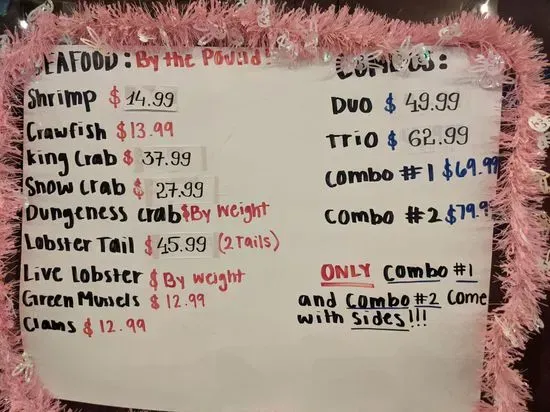 SEAFOOD: By the Pound!
Shrimp $ 14.99
Crawfish $13.99
King Crab $ 37.99
Snow crab $ 27.99
Dungeness crab $By Weight
Lobster Tail $ 45.99 (2 Tails)
Live lobster $ By weight
Green Mussels $ 12.99
Clams $ 12.99
COMBOS:
Duo $ 49.99
Trio $ 62.99
Combo #1 $69.99
Combo #2 $79.99
ONLY Combo #1
and Combo #2 come
with sides!!!